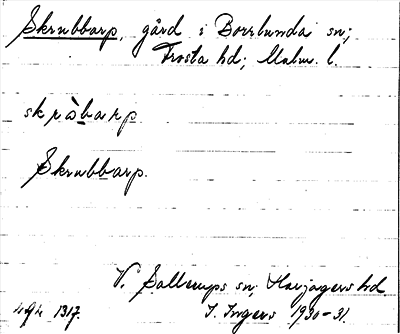 Skrubbarp, gård i Borrlunda sn;
Frosta hd; Malm. l.
skråbarp
Skrubbarp.
V. Sallerups sn; Harjagers hd.
acc 1317. I. Ingers 1930-31.